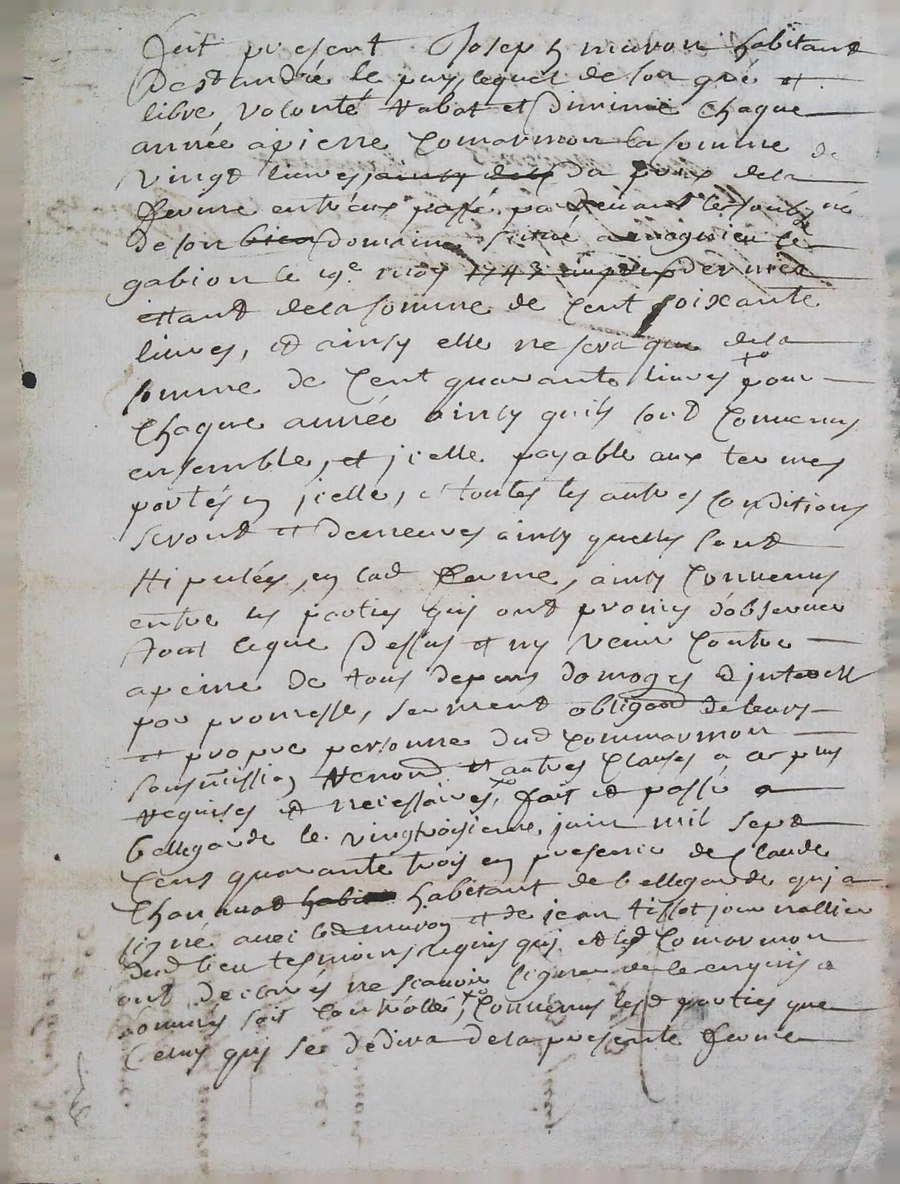 fut present Joseph muron habitant
de st andré le puy lequel de son gré et
libre volonté rabat et diminue chaque
année a pierre Comarmon la somme de
vingt livres du prix de la
ferme entreux passé par devant le soubzné
de son domaine scitué a magnieu le
gabion le 19e may 1743 dernier
ettant de la somme de Cent soixante
livres, et ainsy elle ne sera que de la
somme de Cent quarante livres pour
Chaque année ainsy quils sont Convenus
ensemble, et jcelle payable aux termes
portés en jcelle, et toutes les autres Conditions
seront et demeures ainsy quelles sont
stipulées, en lad ferme, ainsy Convenus
entre les parties quj ont promis d'observer
tout ceque dessus et ny venir Contre
a peine de tous depens domages et jnterest
par promesse, serment obligaon de leurs
et propre personne dud Commarmon
sousmission renond et autres Clauses a ce plus
requises et necessaires, fait et passé a
bellegarde le vingtroisieme juin mil sept
Cens quarante trois en presence de Claude
habitant de bellegarde quj a
signé avec led muron et de jean tissot journallier
dud lieu tesmoins requis quj et led Comarmon
ont declarés ne scavoir signer de ce enquis et
sommés soit Controllé, Convenus lesd parties que
Celuy quj se dedira de la presente ferme